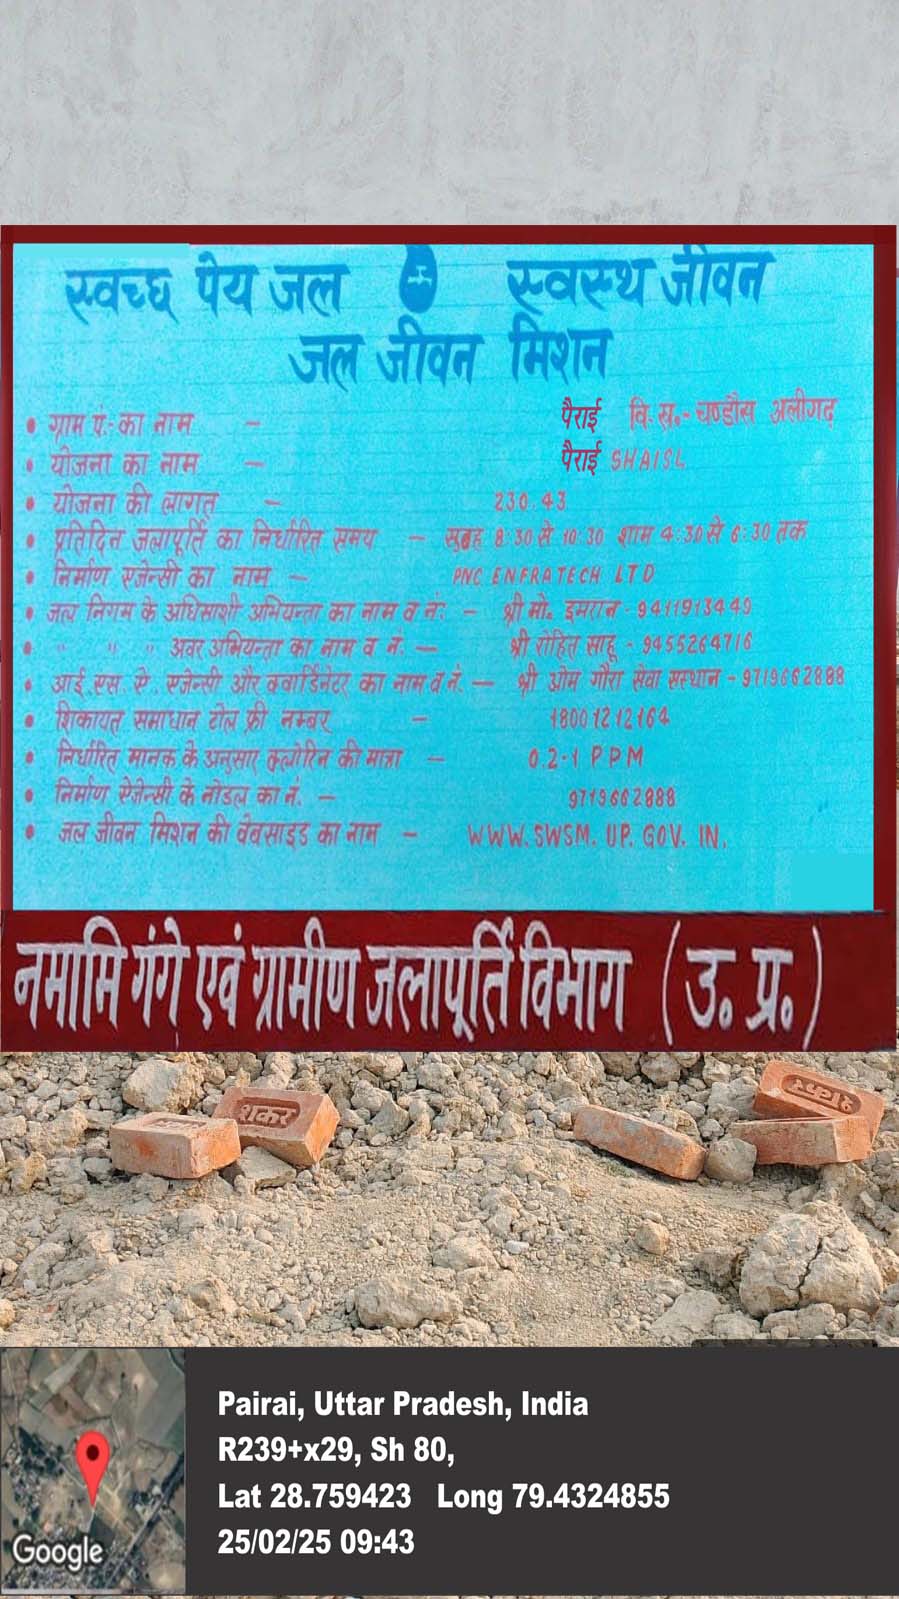 स्वच्छ पेय जल स्वस्थ जीवन
जल जीवन मिशन
• ग्राम पं.- का नाम - पैराई वि. ख.- चण्डौस अलीगढ़
• योजना का नाम - पैराई SHAISL
• योजना की लागत - 230.43
• प्रतिदिन जलापूर्ति का निर्धारित समय - सुबह 8:30 से 10:30 शाम 4:30 से 6:30 तक
• निर्माण एजेन्सी का नाम - PNC ENFRATECH LTD
• जल निगम के अधिसाशी अभियन्ता का नाम व नं: - श्री मो. इमरान - 9411913449
• " " " अवर अभियन्ता का नाम व नं. - श्री रोहित साहू - 9455264716
• आई. एस. ऐ. एजेन्सी और क्वार्डिनेटर का नाम व नं. - श्री ओम गौरा सेवा संस्थान - 9719662888
• शिकायत समाधान टोल फ्री नम्बर - 18001212164
• निर्धारित मानक के अनुसार क्लोरिन की मात्रा - 0.2-1 PPM
• निर्माण ऐजेन्सी के नोडल का नं. - 9719662888
• जल जीवन मिशन की वेबसाइड का नाम - WWW.SWSM.UP.GOV.IN.
नमामि गंगे एवं ग्रामीण जलापूर्ति विभाग (उ. प्र.)
शंकर
Pairai, Uttar Pradesh, India
R239+x29, Sh 80,
Lat 28.759423 Long 79.4324855
25/02/25 09:43
Google